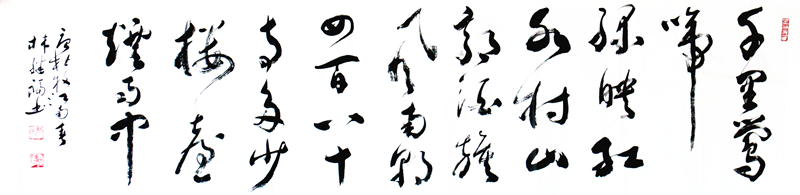 千里鶯
啼
綠映紅
水村山
郭酒旗
風南朝
四百八十
寺多少
樓臺
煙雨中
唐杜牧江南春
林 书